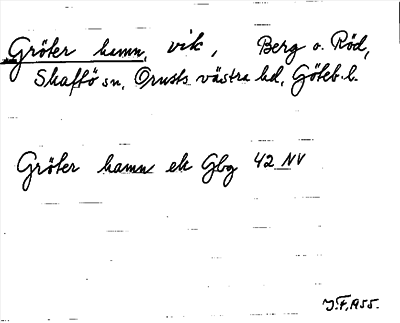 Gröter hamn, vik, Berg o. Röd,
Skaftö sn, Orusts västra hd, Göteb. l.
Gröter hamn ek Gbg 42 NV
J.F. 1955.